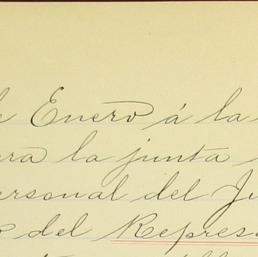 de Enero á la
para la junta
personal del Ju
del Represe